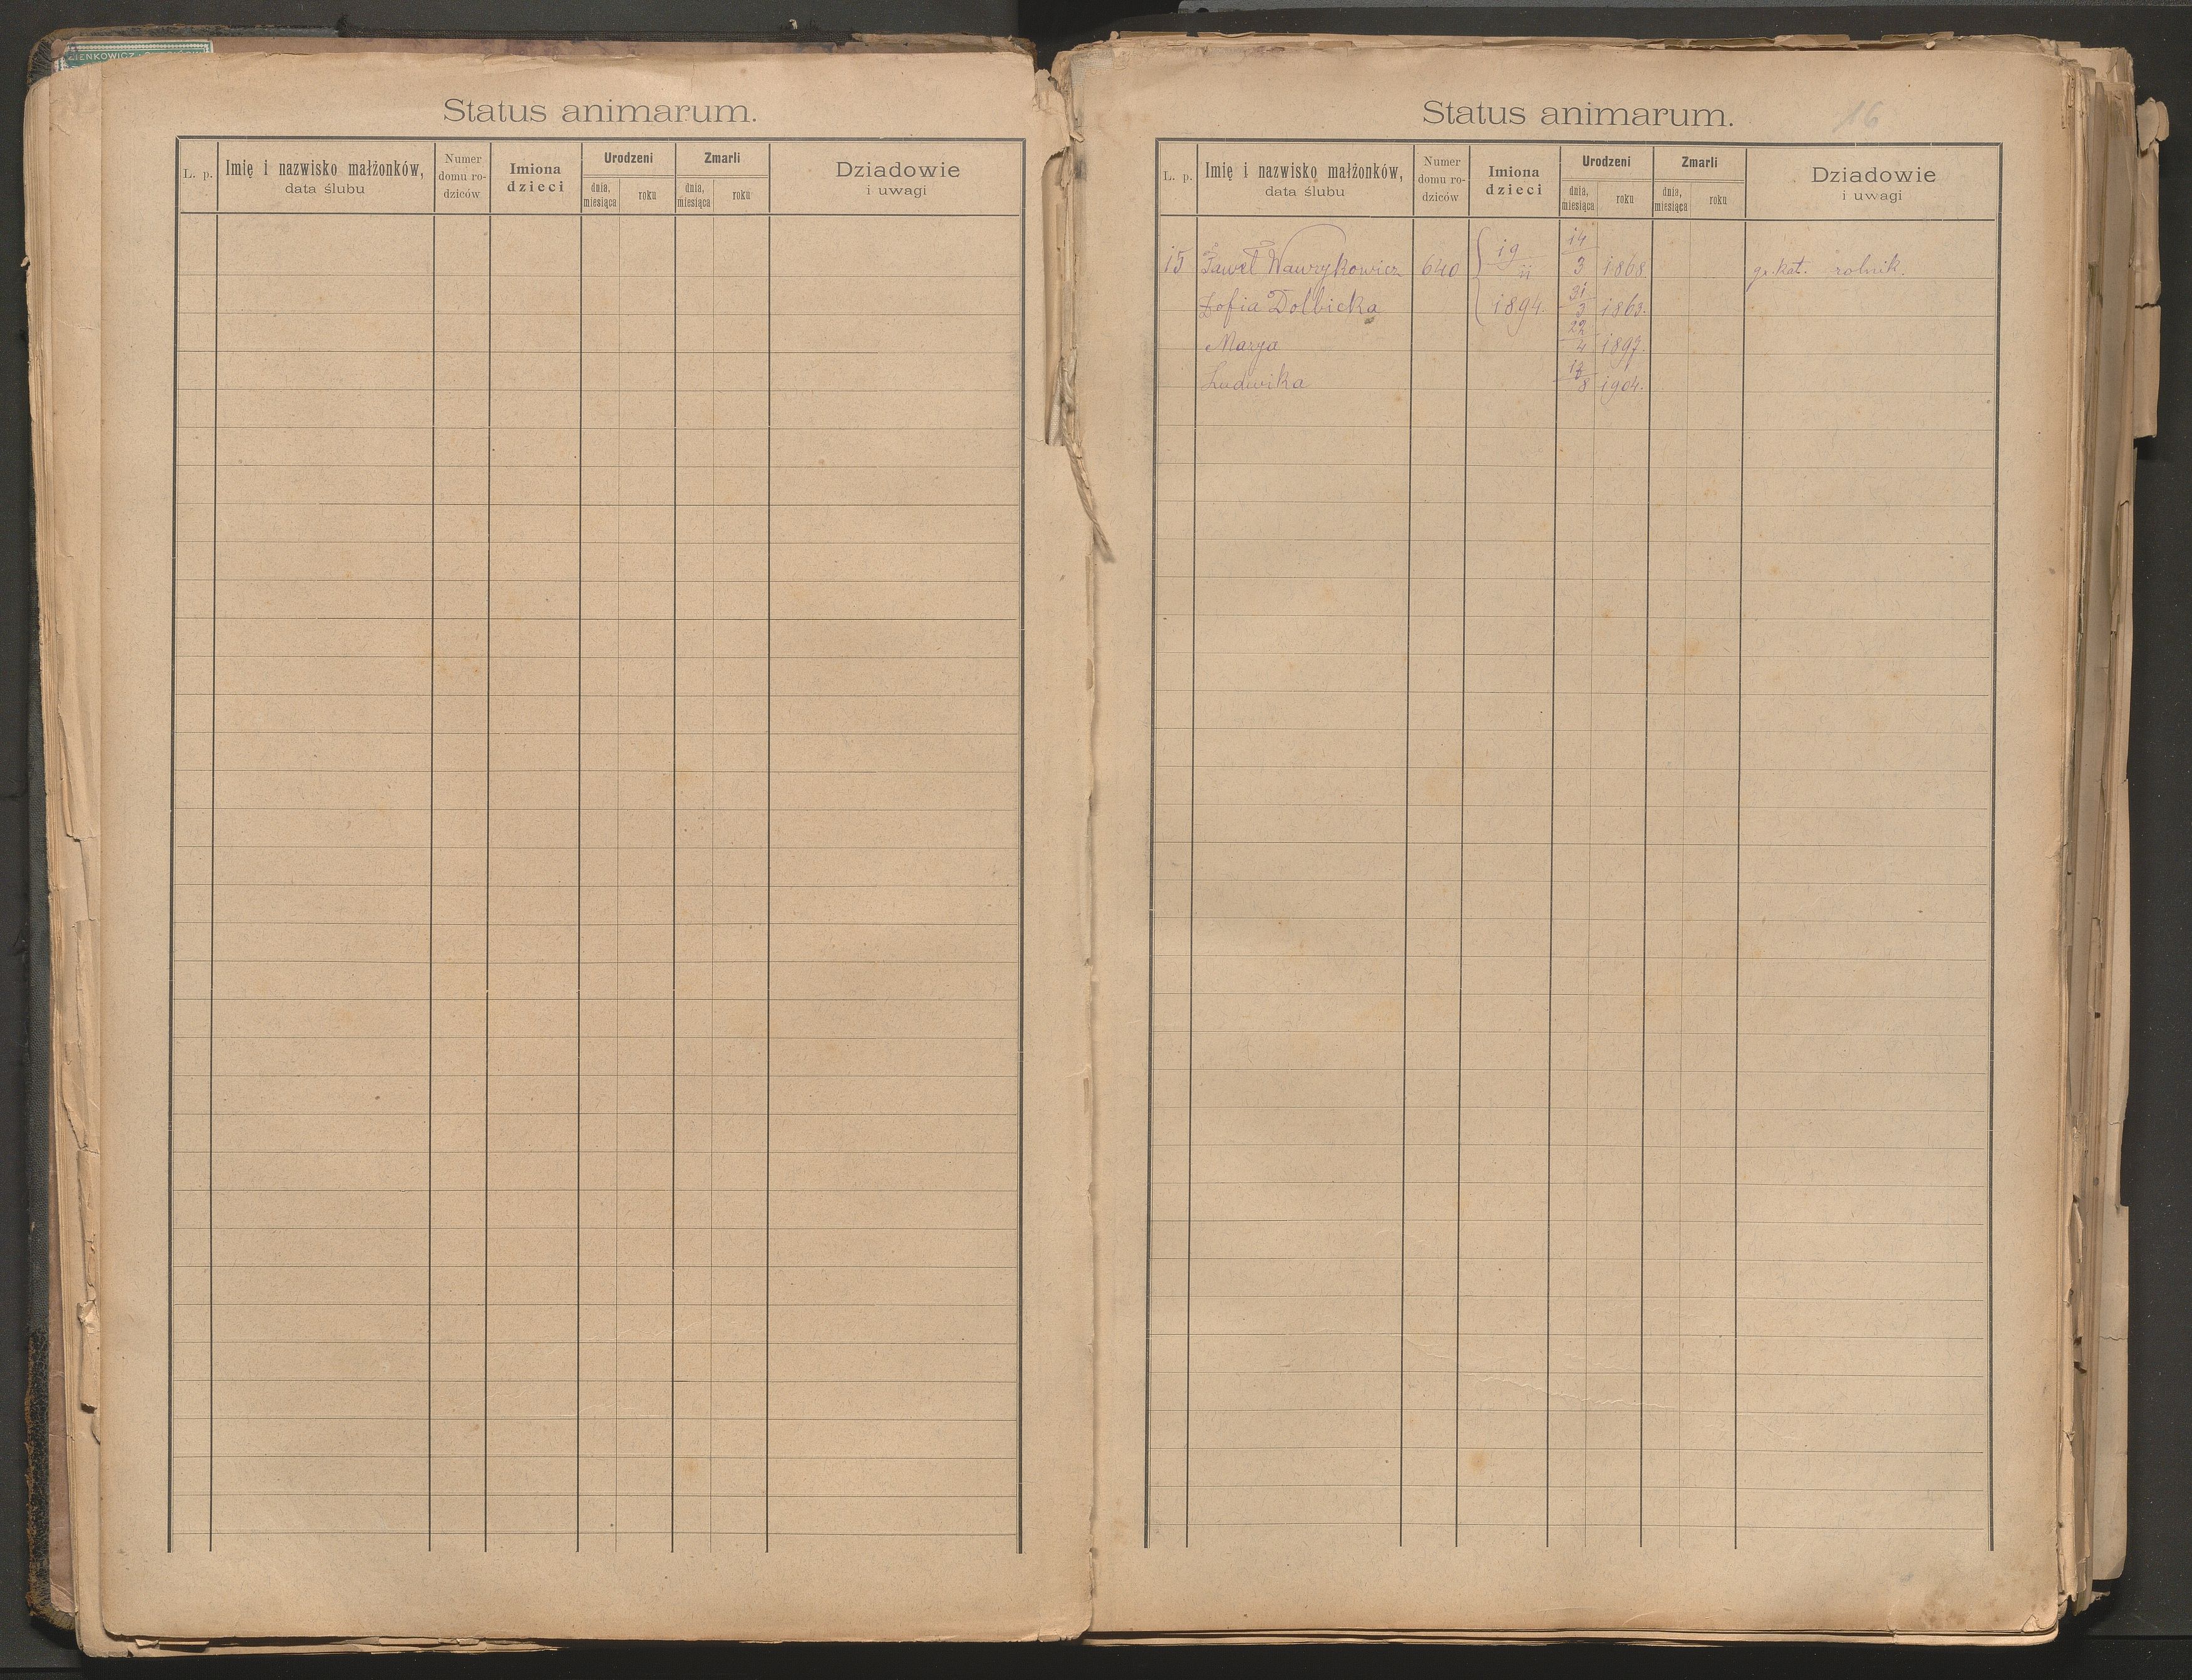 ZIENKOWICZ
Status animarum.
L. p.
Imię i nazwisko małżonków,
data ślubu
Numer
domu ro-
dziców
Imiona
dzieci
Urodzeni
dnia,
miesiąca
roku
Zmarli
dnia,
miesiąca
roku
Dziadowie
i uwagi
Status animarum.
16
L. p.
Imię i nazwisko małżonków,
data ślubu
Numer
domu ro-
dziców
Imiona
dzieci
Urodzeni
dnia,
miesiąca
roku
Zmarli
dnia,
miesiąca
roku
Dziadowie
i uwagi
15 Paweł Wawrykowicz 640 19/11 14/3 1868. gr. kat. rolnik.
Zofia Dolbicka 1894. 31/3 1863.
Marya 22/4 1897.
Ludwika 8 1904.